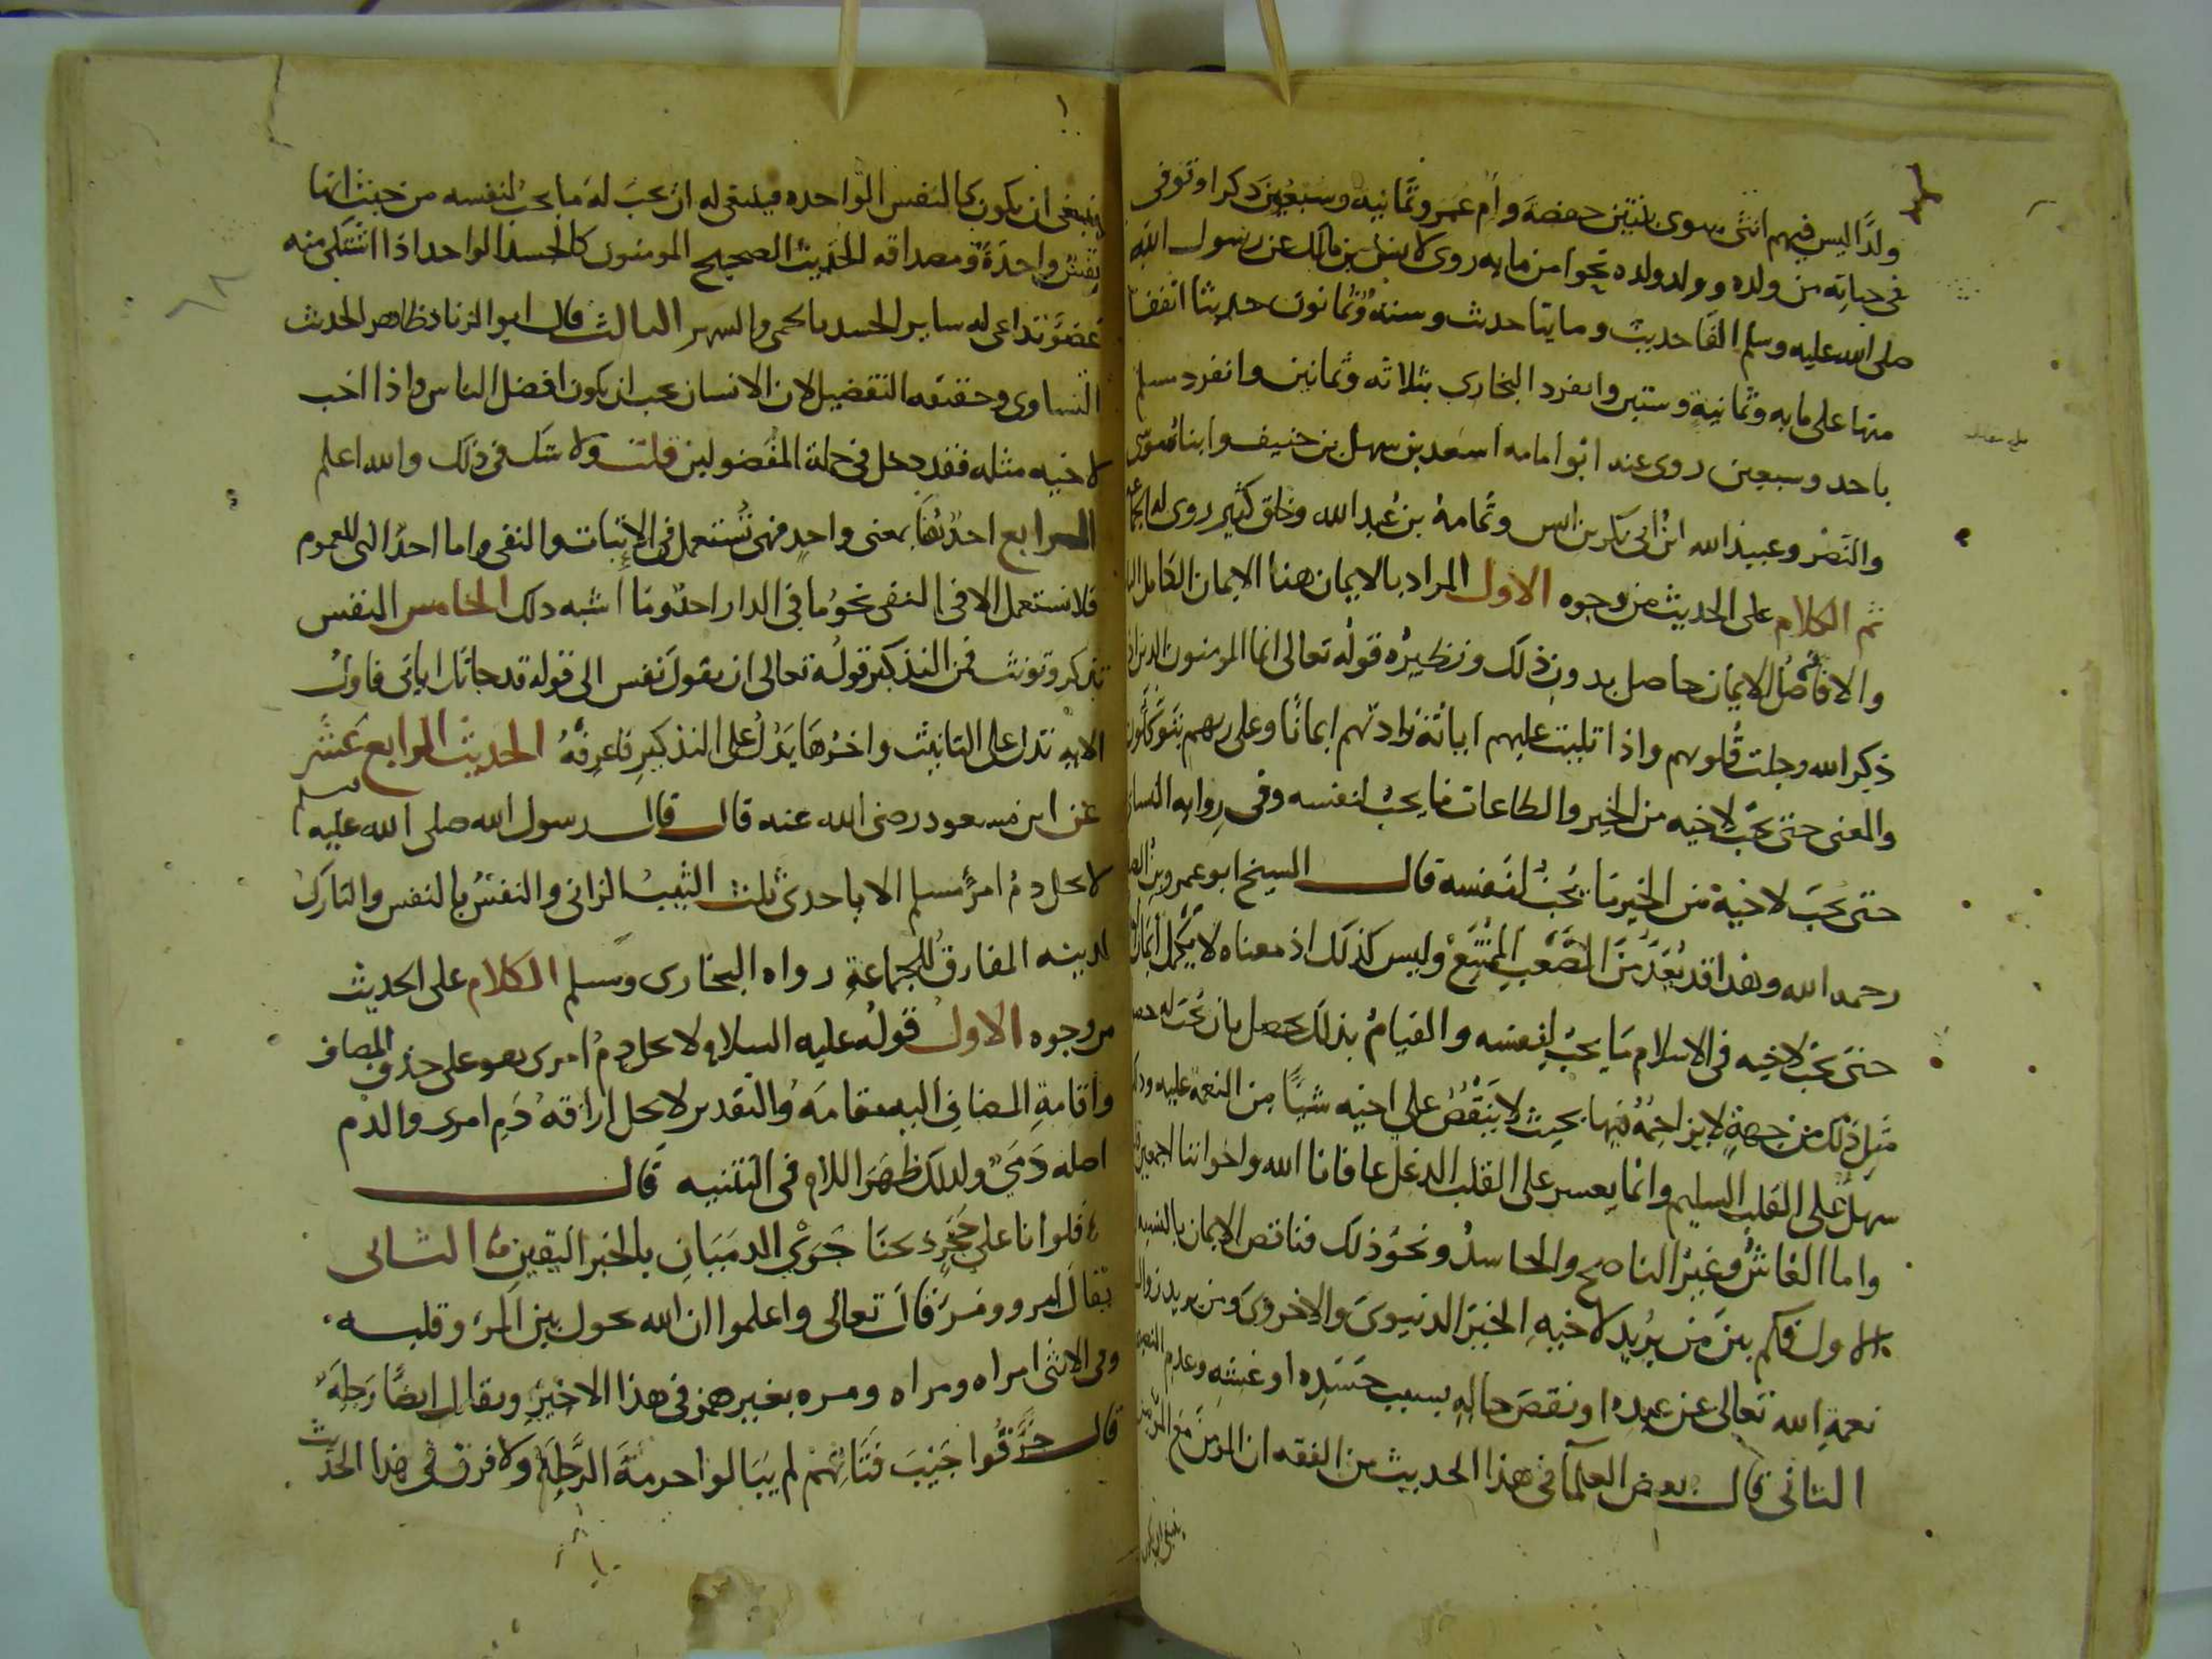 ولدًا ليس فيهم انثى سوى بنتين حفصة وام عمرو ثمانية وسبعين ذكرا وتوفى
في حياته من ولده وولد ولده نحوا من مايه روى لانس بن مالك عن رسول الله
صلى الله عليه وسلم الفا حديث ومايتا حديث وستة وثمانون حديثا اتفقا
منها على مايه وثمانية وستين وانفرد البخارى بثلاثه وثمانين وانفرد مسلم
باحد وسبعين روى عنه ابو امامه اسعد بن سهل بن حنيف وابناه موسى
والنضر وعبيد الله ابن ابى بكر بن انس وثمامة بن عبد الله وخلق كثير روى له الجماعة
ثم الكلام على الحديث من وجوه الاول المراد بالايمان هنا الايمان الكامل
والا فاصل الايمان حاصل بدون ذلك ونظيره قوله تعالى انما المومنون الذين اذا
ذكر الله وجلت قلوبهم واذا تليت عليهم اياته زادتهم ايمانًا وعلى ربهم يتوكلون
والمعنى حتى يحب لاخيه من الخير والطاعات ما يحب لنفسه وفى روايه النساى
حتى يحب لاخيه من الخير ما يحب لنفسه قال الشيخ ابو عمرو بن الصلاح
رحمه الله وهذا قد يُعَدّ من الصَّعْب الممتنع وليس كذلك اذ معناه لا يكمل ايمان
حتى يحب لاخيه في الاسلام ما يحب لنفسه والقيام بذلك يحصل بان يحب له حصول
مثل ذلك من جهةٍ لا يزاحمه فيها بحيث لا ينقص على اخيه شيًا من النعمة عليه وذلك
سهل على القلب السليم وانما يعسر على القلب الدغل عافانا الله واخواننا اجمعين
واما الغاش وغير الناصح والحاسد ونحو ذلك فناقص الايمان بالنسبة
الاول فكم بين من يريد لاخيه الخير الدنيوى والاخروى ومن يريد زوال
نعمة الله تعالى عن عبده او نقص حاله بسبب حسده او غشه وعدم النصح
الثانى قال بعض العلما في هذا الحديث من الفقه ان المومن مع المومن
ينبغى ان يكون
ينبغى ان يكون كالنفس الواحده فينبغى له ان يحب له ما يحب لنفسه من حيث انها
نفس واحدة ومصداقه الحديث الصحيح المومنون كالجسد الواحد اذا اشتكى منه
عضو تداعى له ساير الجسد بالحمى والسهر الثالث قال ابو الزناد ظاهر الحديث
التساوى وحقيقه التفضيل لان الانسان يحب ان يكون افضل الناس واذا احب
لاخيه مثله فقد دخل في جملة المفضولين قلت ولا شك في ذلك والله اعلم
الرابع احدٌ هنا بمعنى واحد فهى تستعمل في الاثبات والنفى واما احدٌ التى للعموم
فلا تستعمل الا في النفى نحو ما في الدار احدٌ وما اشبه ذلك الخامس النفس
تذكر وتونث فمن التذكير قوله تعالى ان تقول نفس الى قوله قد جاتك اياتى فاول
الايه تدل على التانيث واخرها يدل على التذكير فاعرفه الحديث الرابع عشر
عن ابن مسعود رضى الله عنه قال قال رسول الله صلى الله عليه وسلم
لا يحل دم امرئ مسلم الا باحدى ثلث الثيب الزانى والنفس بالنفس والتارك
لدينه المفارق للجماعة رواه البخارى ومسلم الكلام على الحديث
من وجوه الاول قوله عليه السلام لا يحل دم امرى هو على حذف المضاف
واقامة المضاف اليه مقامه والتقدير لا يحل اراقة دم امرى والدم
اصله دَمَىٌ ولذلك ظهر اللام في التثنيه قال
فلو انا على حَجَرٍ ذبحنا جَرَى الدميان بالخبر اليقين الثانى
يقال امرو ومَرء قال تعالى واعلموا ان الله يحول بين المرء وقلبه
وفى الانثى امراه ومراه ومره بغير همز في هذا الاخير ويقال ايضًا رَجلة
قال خرقوا جَيْبَ فتاتهم لم يبالوا حرمة الرَّجلة ولا فرق في هذا الحديث